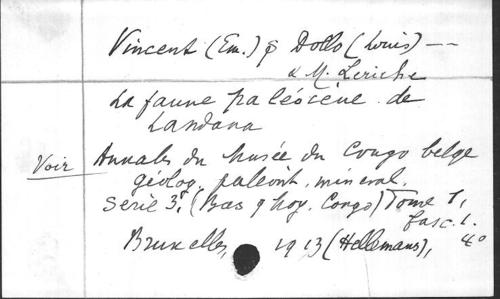 Vincent (Em.) & Dollo (Louis) —
& M. Leriche
La faune paléocène de
Landana
Voir Annales du Musée du Congo belge
géolog. paléont. minéral.
Série 3, (Bas & Moy. Congo) Tome 1,
fasc. 1.
Bruxelles, 1913 (Hellemans), 4°